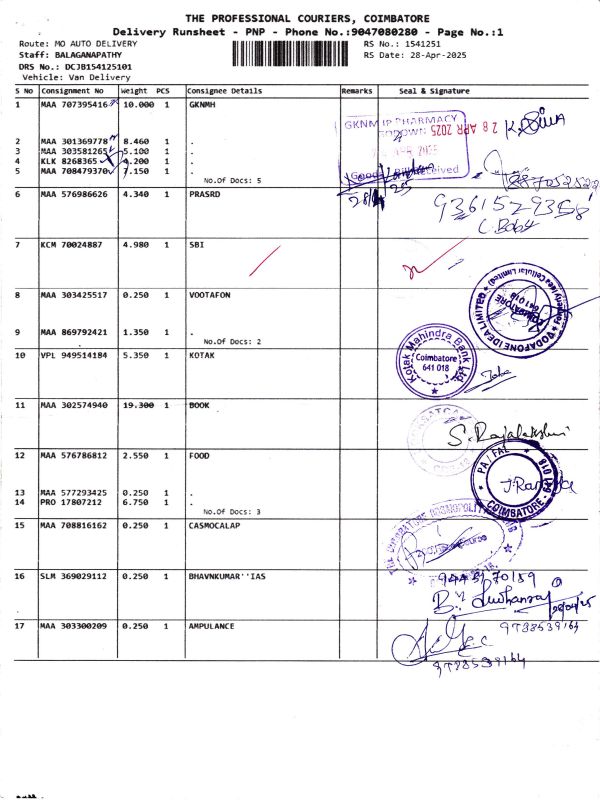 THE PROFESSIONAL COURIERS, COIMBATORE
Delivery Runsheet - PNP - Phone No.:9047080280 - Page No.:1
Route: MO AUTO DELIVERY
RS No.: 1541251
Staff: BALAGANAPATHY
RS Date: 28-Apr-2025
DRS No.: DCJB154125101
Vehicle: Van Delivery
S No Consignment No Weight PCS Consignee Details Remarks Seal & Signature
1 MAA 707395416 10.000 1 GKNMH
GKNM IP PHARMACY
GODOWN 28 APR 2025
2 MAA 301369778 8.460 1 .
3 MAA 303581265 5.100 1 .
4 KLK 8268365 4.200 1 .
5 MAA 708479370 7.150 1 .
No.Of Docs: 5
6 MAA 576986626 4.340 1 PRASRD
9361529358
7 KCM 70024887 4.980 1 SBI
8 MAA 303425517 0.250 1 VOOTAFON
VODAFONE IDEA LIMITED
9 MAA 869792421 1.350 1 .
No.Of Docs: 2
10 VPL 949514184 5.350 1 KOTAK
Kotak Mahindra Bank Ltd
Coimbatore
641 018
11 MAA 302574940 19.300 1 BOOK
S. Rajalakshmi
12 MAA 576786812 2.550 1 FOOD
PA / FAL
COIMBATORE - 641 018
13 MAA 577293425 0.250 1 .
14 PRO 17807212 6.750 1 .
No.Of Docs: 3
15 MAA 708816162 0.250 1 CASMOCALAP
16 SLM 369029112 0.250 1 BHAVNKUMAR''IAS
17 MAA 303300209 0.250 1 AMPULANCE
9788539164
9788539164